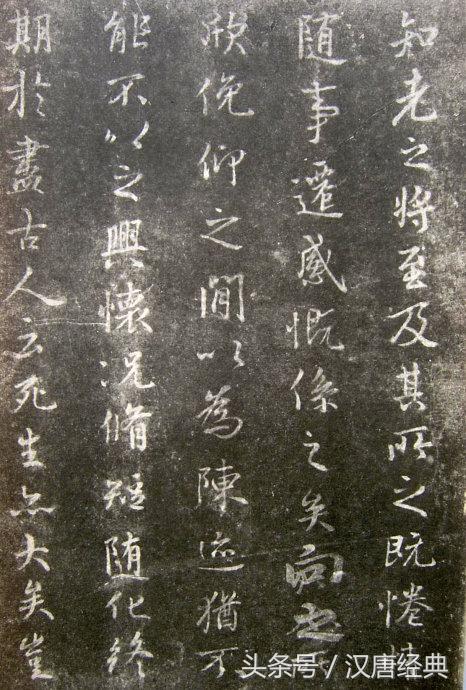 知老之将至及其所之既惓情
随事遷感慨係之矣向之
欣俛仰之閒以為陳迹猶不
能不以之興懷况脩短随化終
期於盡古人云死生亦大矣豈
头条号 / 汉唐经典